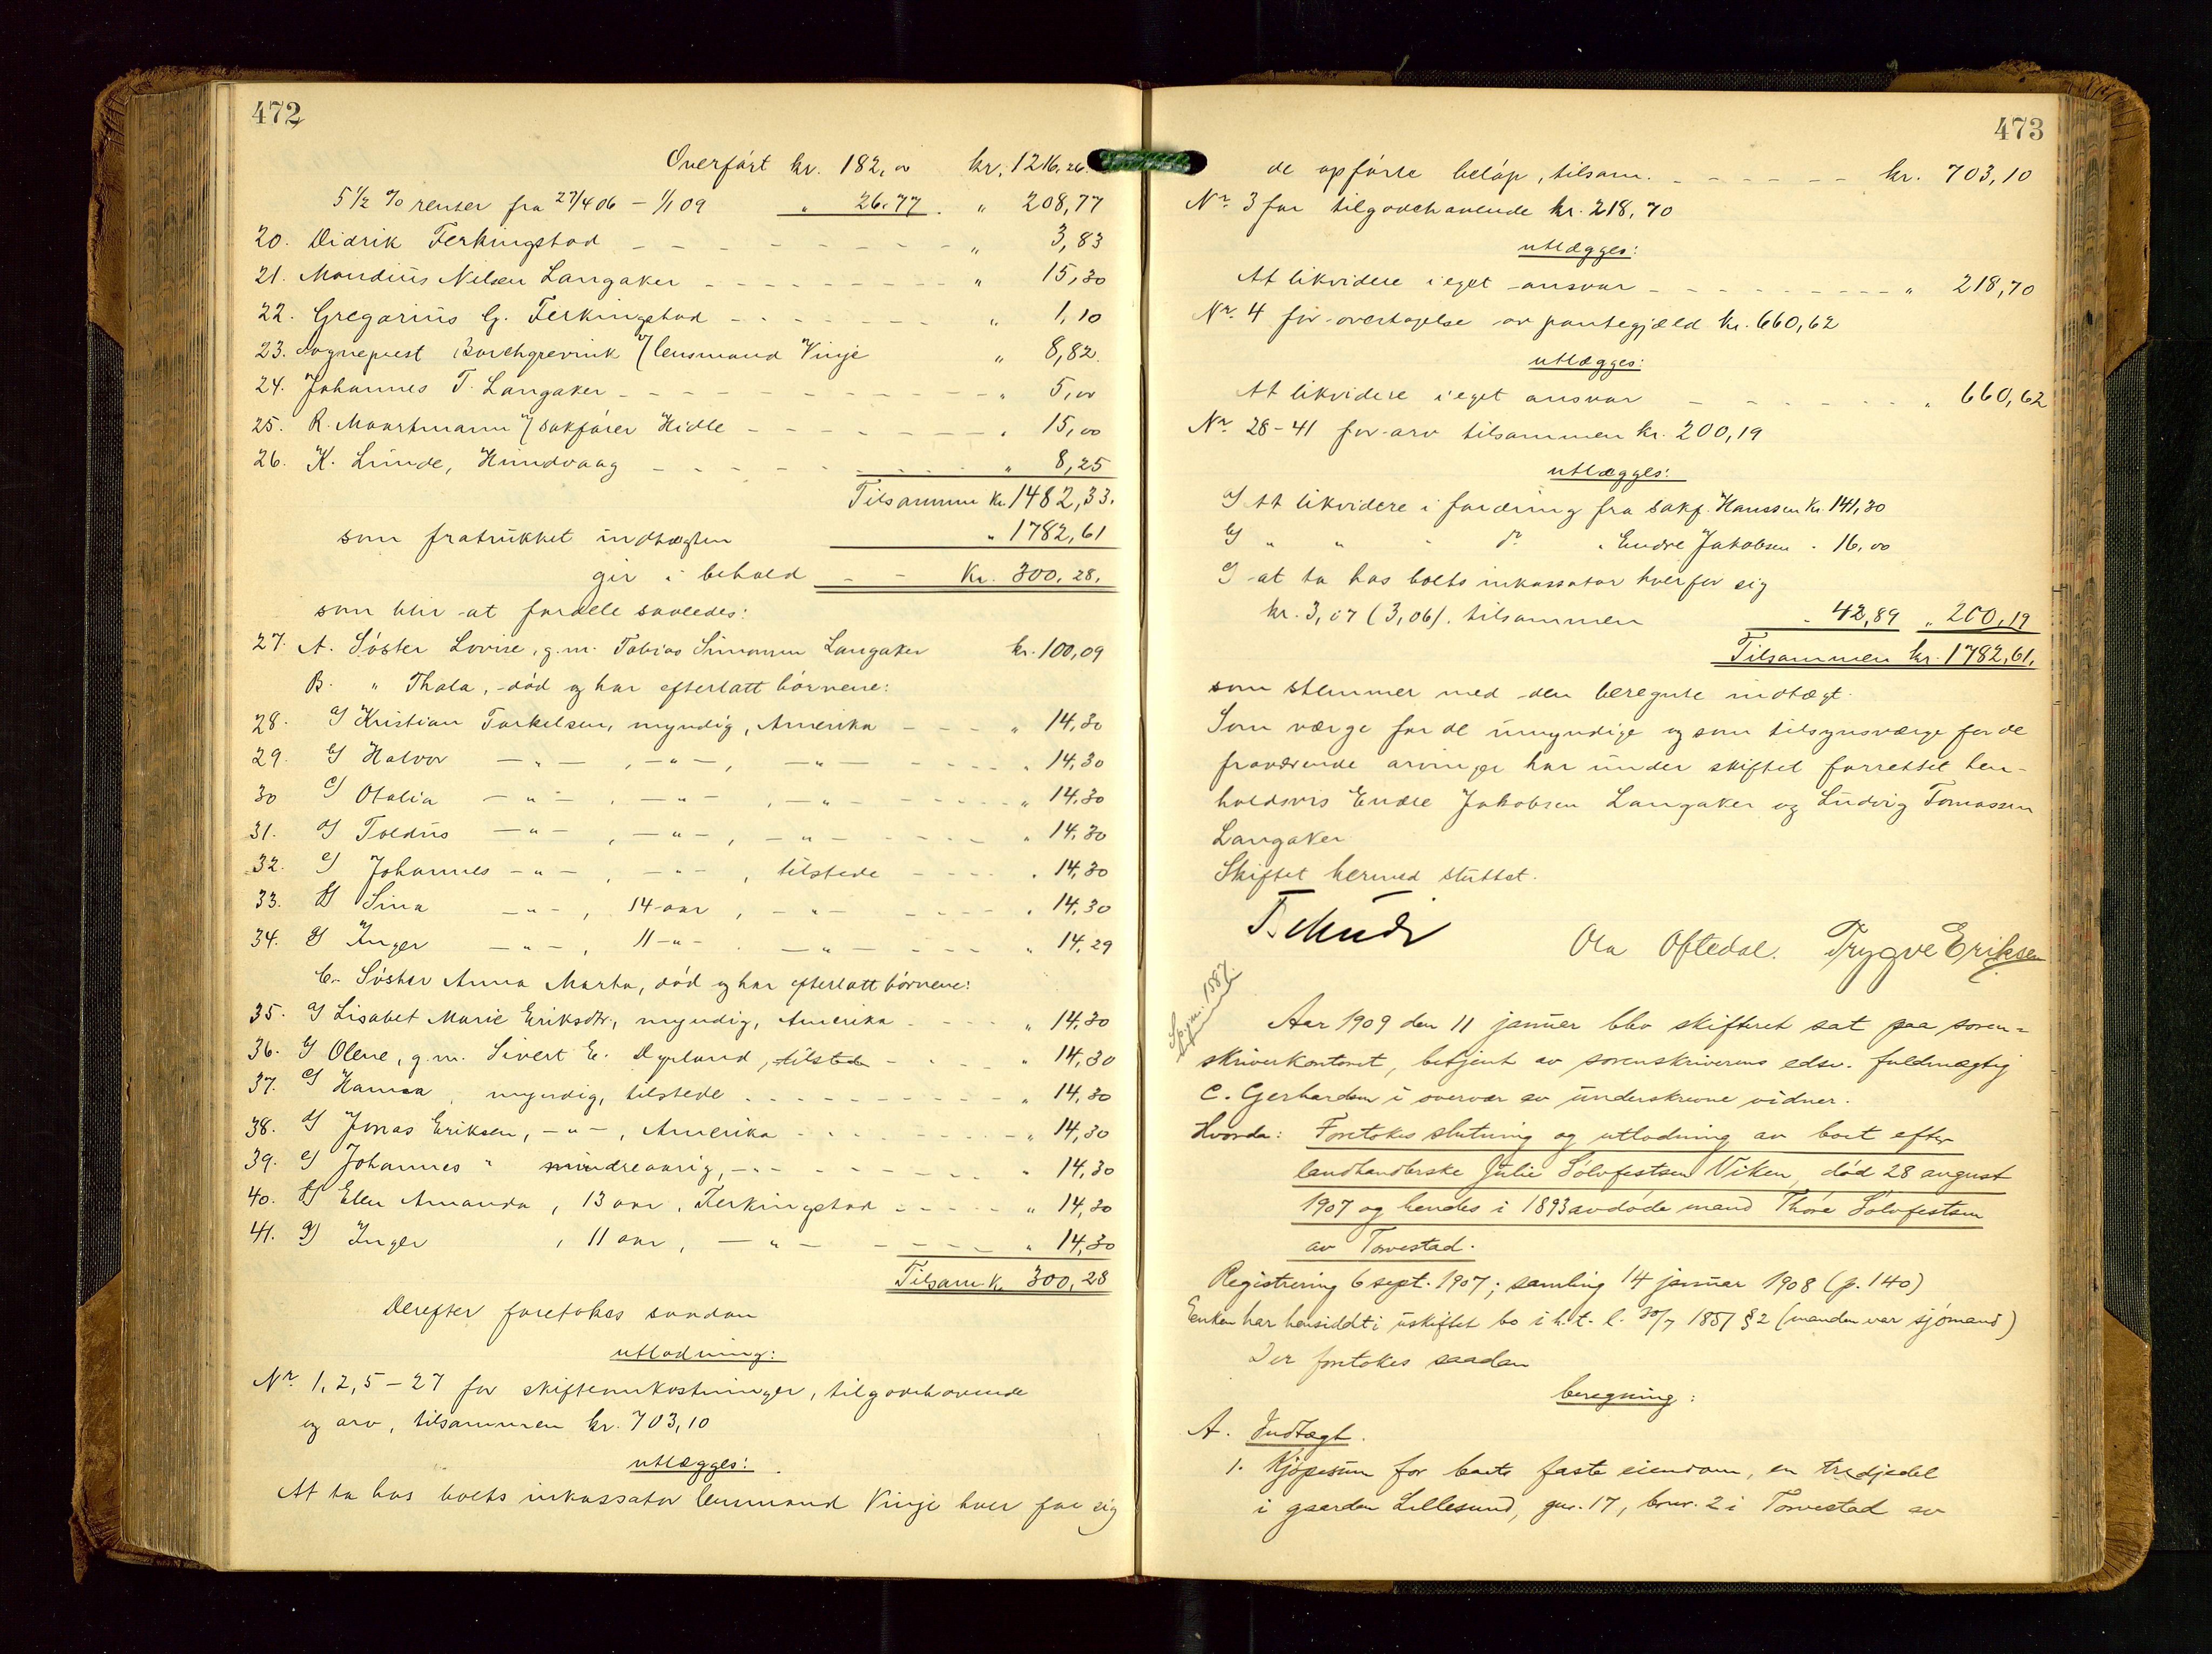 472
Overført kr. 182,00 kr. 1216,26
5 1/2 % renter fra 27/4 06 - 1/1 09 " 26.77. " 208,77
20. Didrik Ferkingstad - - - - " 3,83
21. Mandius Nilsen Langaker - - - - " 15,30
22. Gregarius G. Ferkingstad - - - - " 1,10
23. Sogneprest Borchgrevink v/ lensmand Vinje " 8,82.
24. Johannes T. Langaker - - - - " 5,00
25. R. v/ sakfører Hidle - - - - " 15,00
26. K. Lunde, Hundvaag - - - - " 8,25
Tilsammen kr. 1482,33.
som fratrukket indtægten " 1782,61
gir i behold - - Kr. 300,28.
som blir at fordele saaledes:
27. A. Søster Lovise, g.m. Tobias Simonsen Langaker kr. 100,09
B. " Thala, død og har efterlatt børnene:
28. a) Kristian Torkelsen, myndig, Amerika - - - " 14,30
29. b) Halvor - " - , - " - , - " - - - - " 14,30
30 c) Otalia - " - , - " - , - " - - - - " 14,30
31. d) Toldus - " - , - " - , - " - - - - " 14,30
32. e) Johannes - " - , - " - , tilstede - - - " 14,30
33. f) Sina - " - , 14 aar , - " - - - - " 14,30
34. g) Inger - " - , 11 - " - . - " - - - - " 14,29
C. Søster Anna Marta, død og har efterlatt børnene:
35. a) Lisabet Marie Eriksdtr, myndig, Amerika - - - " 14,30
36. b) Olene, g.m. Sivert E. Dyrland, tilstede - - " 14,30
37. c) Hanna, myndig, tilstede - - - - " 14,30
38. d) Jonas Eriksen, - " - , Amerika - - - - " 14,30
39. e) Johannes " mindreaarig, - " - - - - " 14,30
40. f) Elen Amanda, 13 aar, Ferkingstad - - - - " 14,30
41. g) Inger , 11 aar, - " - - - - " 14,30
Tilsam. kr. 300,28
Derefter foretokes saadan
utlodning:
Nr. 1, 2, 5 - 27 for skifteomkostninger, tilgodehavende
og arv, tilsammen kr. 703,10
utlægges:
At ta hos boets inkassator lensmand Vinje hver for sig
473
de opførte beløp, tilsam. - - - - kr. 703,10
Nr. 3 for tilgodehavende kr. 218,70
utlægges:
At likvidere i eget ansvar - - - - " 218,70
Nr. 4 for overtagelse av pantegjæld kr. 660,62
utlægges:
At likvidere i eget ansvar - - - - " 660,62
Nr. 28 - 41 for arv tilsammen kr. 200,19
utlægges:
a) At likvidere i fordring fra sakf. Hanssen kr. 141,30
b) " " " do " Endre Jakobsen " 16,00
c) at ta hos boets inkassator hver for sig
kr. 3,07 (3,06). tilsammen " 42,89 " 200,19
Tilsammen kr. 1782,61.
som stemmer med den beregnte indtægt.
Som værge for de umyndige og som tilsynsværge for de
fraværende arvinger har under skiftet forrettet hen-
holdsvis Endre Jakobsen Langaker og Ludvig Tomassen
Langaker
Skiftet hermed sluttet.
Tschudi
Ola Oftedal. Trygve Eriksen
Aar 1909 den 11 januar blev skifteret sat paa soren=
skriverkontoret, betjent av sorenskriverens edsv. fuldmægtig
C. Gerhardsen i overvær av underskrevne vidner.
Hvorda: Foretokes slutning og utlodning av boet efter
landhandlerske Julie Sølvfestsen Viken, død 28 august
1907 og hendes i 1893 avdøde mand Thore Sølvfestsen
av Torvestad.
Registrering 6 sept. 1907; samling 14 januar 1908 (p. 140)
Enken har hensiddet i uskiftet bo i h.t. l. 30/7 1851 § 2 (manden var sjømand)
Der foretokes saadan
beregning:
A. Indtægt.
1. Kjøpesum for boets faste eiendom, en tredjedel
i gaarden Lillesund, gnr. 17, brnr. 2 i Torvestad av